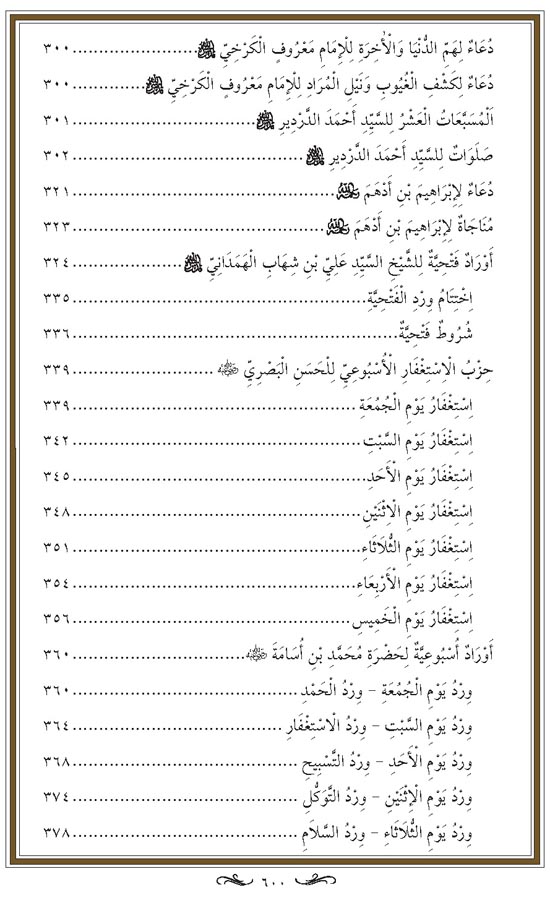 دُعَاءٌ لِهَمِّ الدُّنْيَا وَالْأٰخِرَةِ لِلْإِمَامِ مَعْرُوفٍ الْكَرْخِيِّ ..................... ٣٠٠
دُعَاءٌ لِكَشْفِ الْغُيُوبِ وَنَيْلِ الْمُرَادِ لِلْإِمَامِ مَعْرُوفٍ الْكَرْخِيِّ ............. ٣٠٠
اَلْمُسَبَّعَاتُ الْعَشْرُ لِلسَّيِّدِ أَحْمَدَ الدَّرْدِيرِ ............................... ٣٠١
صَلَوَاتٌ لِلسَّيِّدِ أَحْمَدَ الدَّرْدِيرِ ....................................... ٣٠٢
دُعَاءٌ لِإِبْرَاهِيمَ بْنِ أَدْهَمَ ............................................ ٣٢١
مُنَاجَاةٌ لِإِبْرَاهِيمَ بْنِ أَدْهَمَ .......................................... ٣٢٣
أَوْرَادٌ فَتْحِيَّةٌ لِلشَّيْخِ السَّيِّدِ عَلِيِّ بْنِ شِهَابِ الْهَمَدَانِيِّ ................... ٣٢٤
اِخْتِتَامُ وِرْدِ الْفَتْحِيَّةِ ................................................. ٣٣٥
شُرُوطٌ فَتْحِيَّةٌ ...................................................... ٣٣٦
حِزْبُ الْاِسْتِغْفَارِ الْأُسْبُوعِيِّ لِلْحَسَنِ الْبَصْرِيِّ ........................ ٣٣٩
اِسْتِغْفَارُ يَوْمِ الْجُمُعَةِ ................................................ ٣٣٩
اِسْتِغْفَارُ يَوْمِ السَّبْتِ ................................................. ٣٤٢
اِسْتِغْفَارُ يَوْمِ الْأَحَدِ ................................................. ٣٤٥
اِسْتِغْفَارُ يَوْمِ الْاِثْنَيْنِ ................................................ ٣٤٨
اِسْتِغْفَارُ يَوْمِ الثُّلَاثَاءِ ................................................ ٣٥١
اِسْتِغْفَارُ يَوْمِ الْأَرْبِعَاءِ ............................................... ٣٥٤
اِسْتِغْفَارُ يَوْمِ الْخَمِيسِ ............................................... ٣٥٦
أَوْرَادٌ أُسْبُوعِيَّةٌ لِحَضْرَةِ مُحَمَّدِ بْنِ أُسَامَةَ ............................. ٣٦٠
وِرْدُ يَوْمِ الْجُمُعَةِ - وِرْدُ الْحَمْدِ ....................................... ٣٦٠
وِرْدُ يَوْمِ السَّبْتِ - وِرْدُ الْاِسْتِغْفَارِ .................................... ٣٦٤
وِرْدُ يَوْمِ الْأَحَدِ - وِرْدُ التَّسْبِيحِ ....................................... ٣٦٨
وِرْدُ يَوْمِ الْإِثْنَيْنِ - وِرْدُ التَّوَكُّلِ ...................................... ٣٧٤
وِرْدُ يَوْمِ الثُّلَاثَاءِ - وِرْدُ السَّلَامِ ...................................... ٣٧٨
٦٠٠